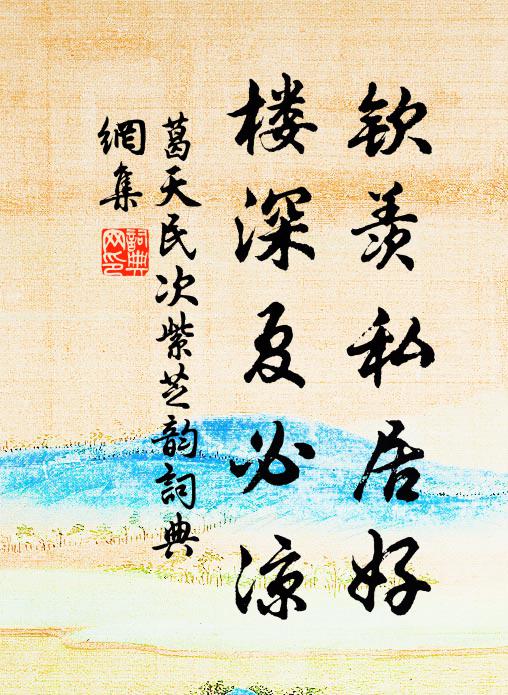 钦羡私居好
楼深夏必凉
葛天民次紫芝韵詞典
網集
詞典
网印